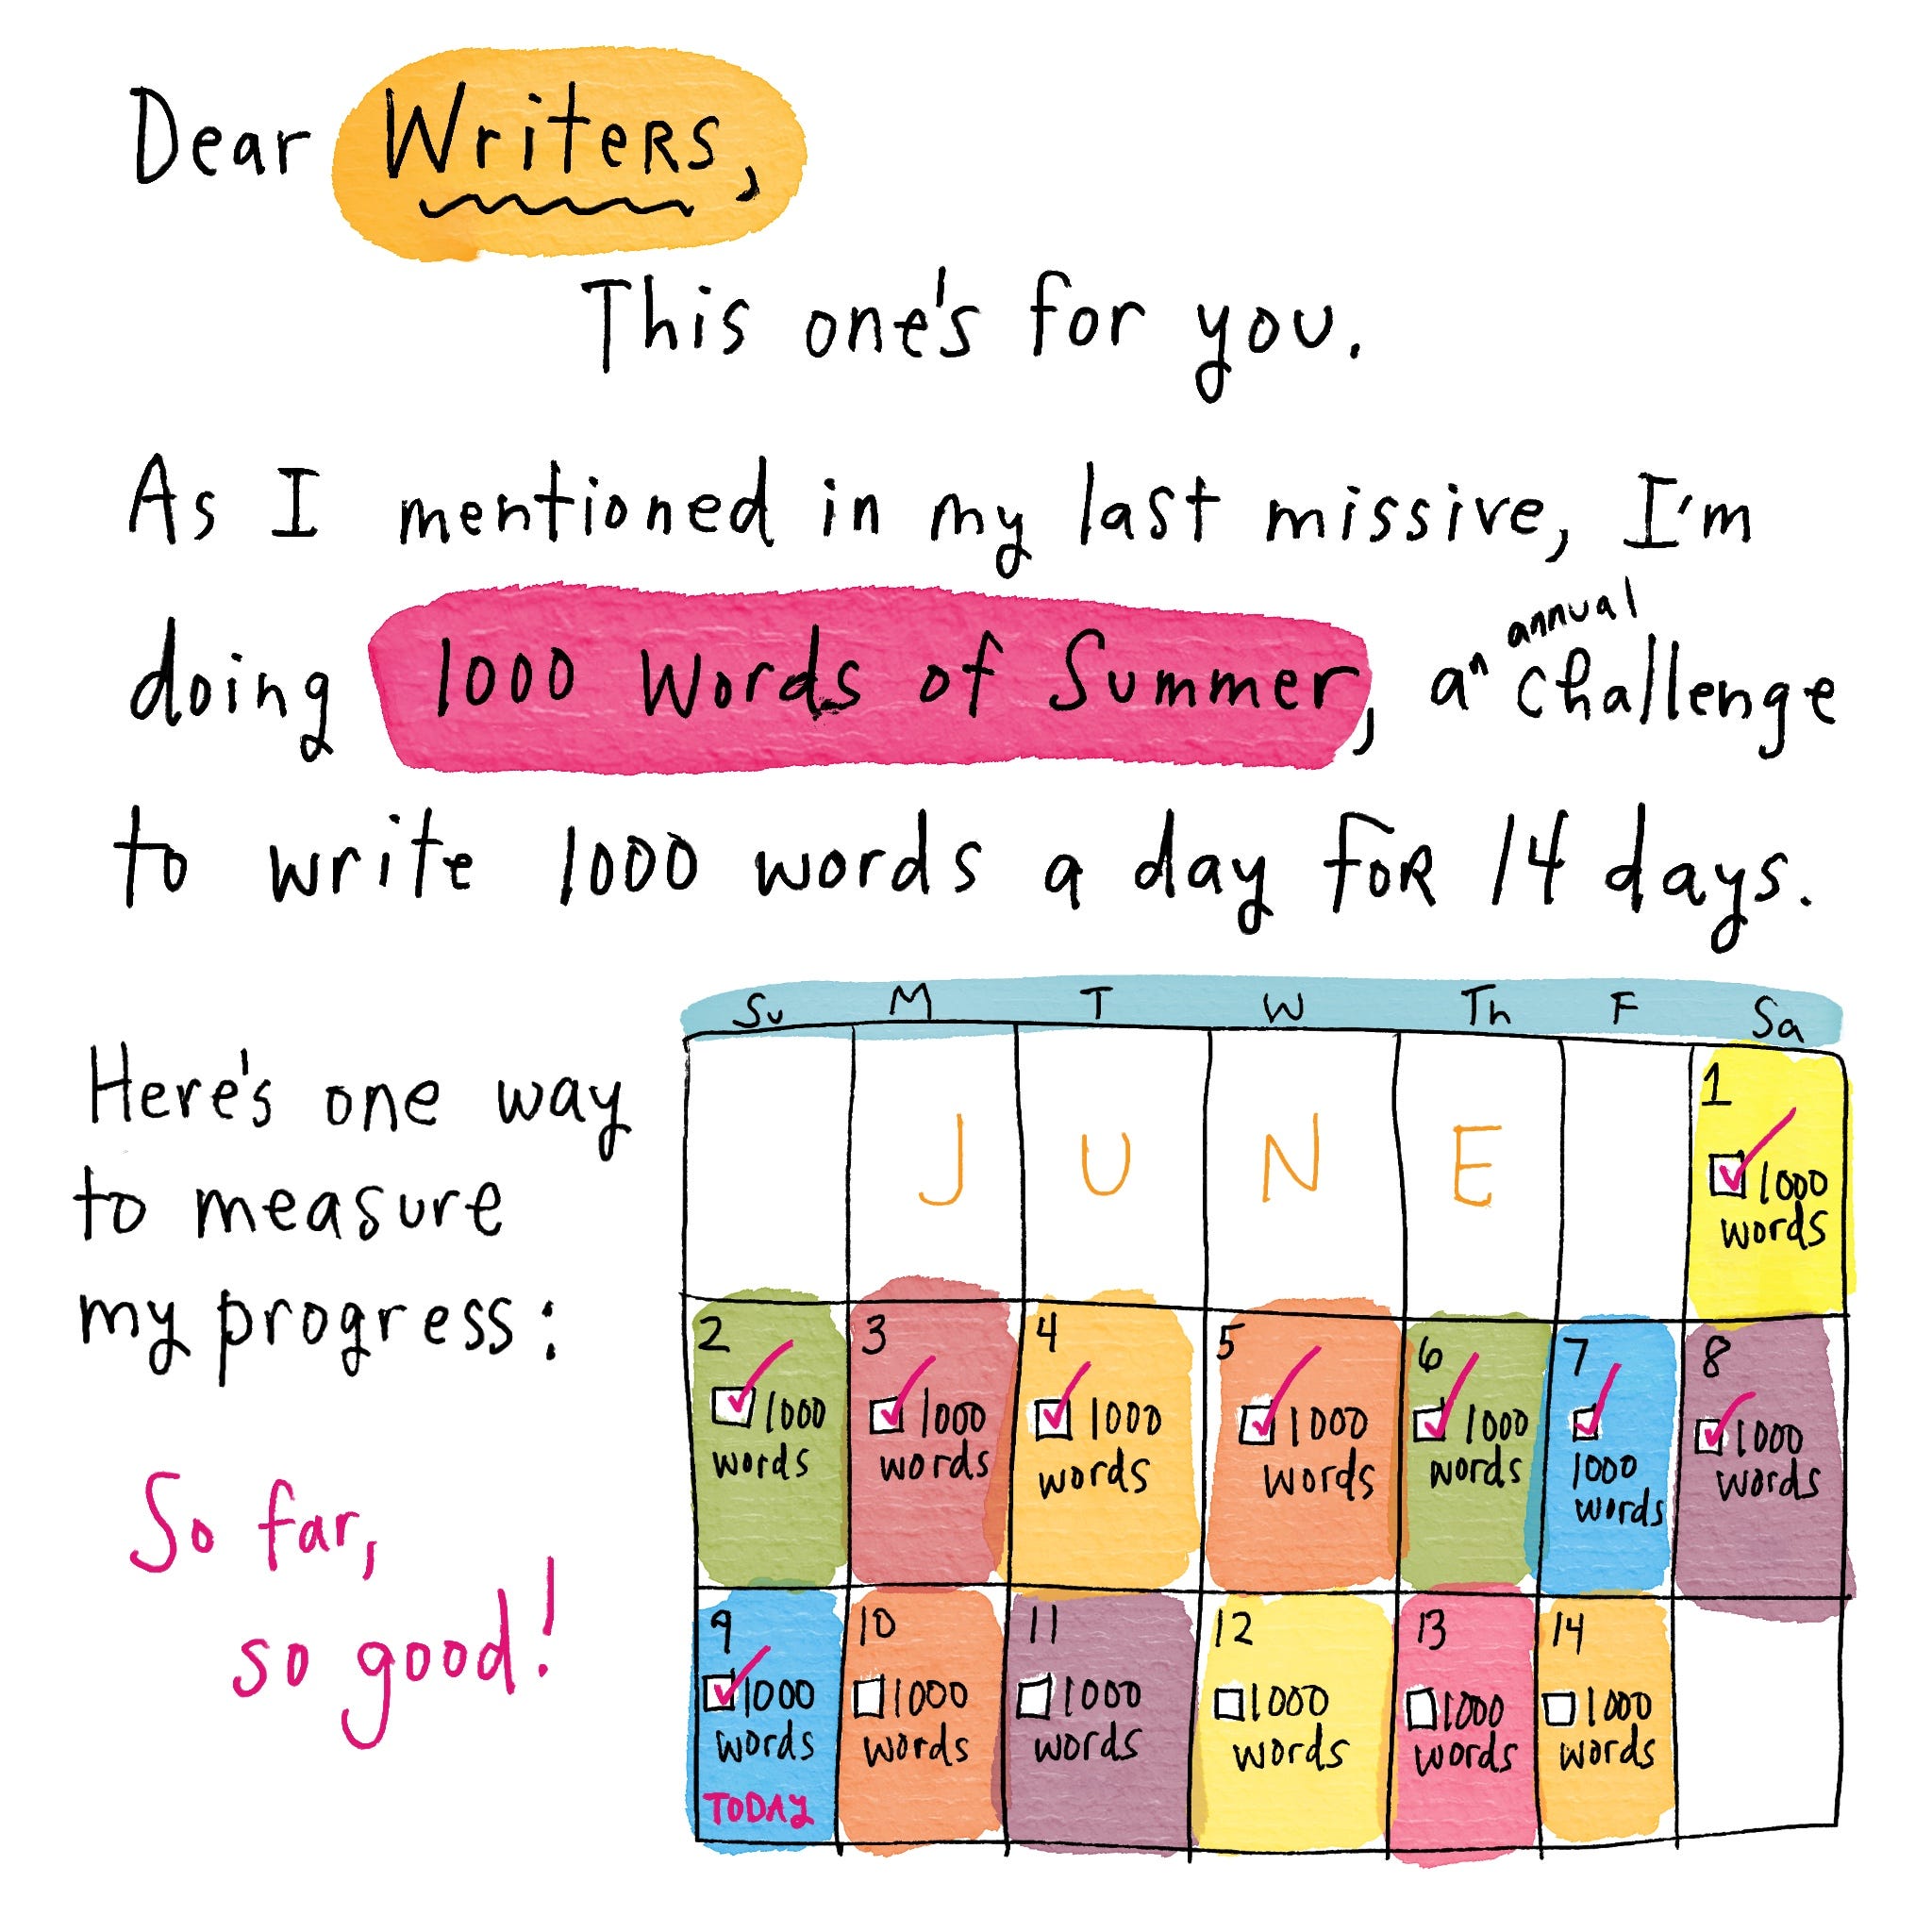 Dear Writers,
This one's for you.
As I mentioned in my last missive, I'm
doing 1000 Words of Summer, an annual challenge
to write 1000 words a day for 14 days.
Here's one way
to measure
my progress:
So far,
so good!
Su M T W Th F Sa
JUNE
1
1000
words
2
1000
words
3
1000
words
4
1000
words
5
1000
words
6
1000
words
7
1000
words
8
1000
words
9
1000
words
TODAY
10
1000
words
11
1000
words
12
1000
words
13
1000
words
14
1000
words